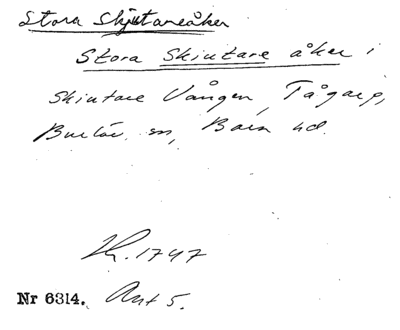 Stora Skjutareåker
Stora Skiutare åker i
Skiutare Vången, Tågarp,
Burlöv sn, Bara hd.
K. 1747
Nr 6314. Akt 5.